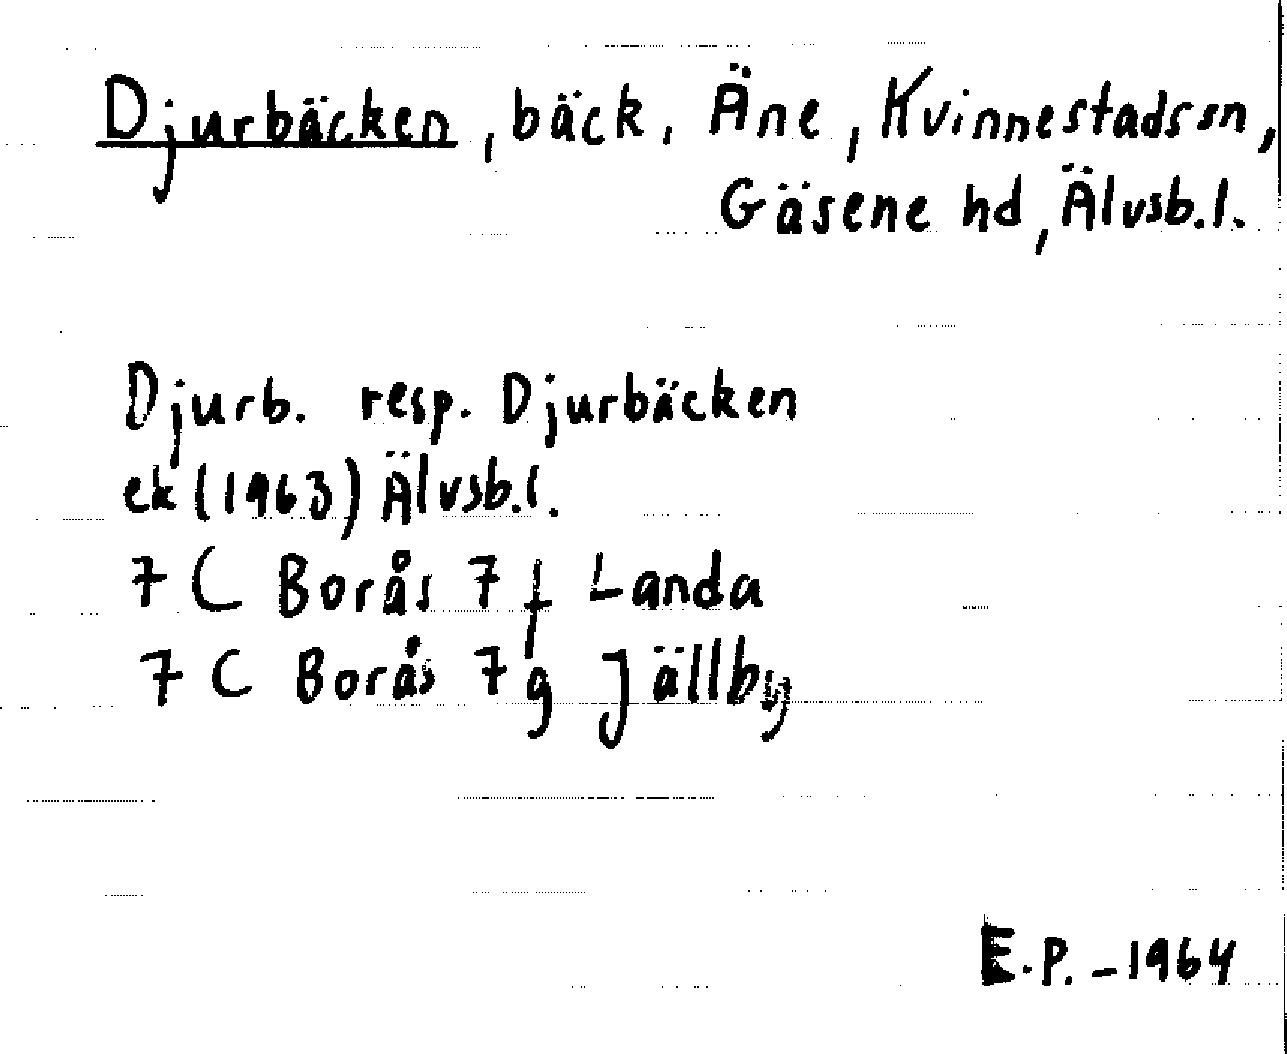 Djurbäcken, bäck, Äne, Kvinnestads sn,
Gäsene hd, Älvsb.l.
Djurb. resp. Djurbäcken
ek (1963) Älvsb.l.
7 C Borås 7 f Landa
7 C Borås 7 g Jällby
E.P. - 1964